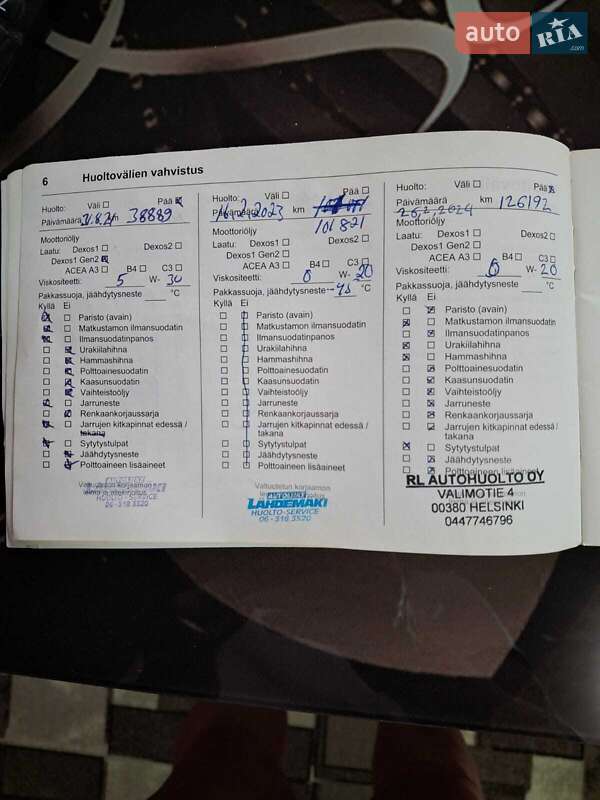 auto RIA .com
6 Huoltovälien vahvistus
Huolto: Väli Pää
Päivämäärä 31.8.21 km 38889
Moottoriöljy
Laatu: Dexos1 Dexos2
Dexos1 Gen2
ACEA A3 B4 C3
Viskositeetti: 5 W- 30
Pakkassuoja, jäähdytysneste °C
Kyllä Ei
Paristo (avain)
Matkustamon ilmansuodatin
Ilmansuodatinpanos
Urakiilahihna
Hammashihna
Polttoainesuodatin
Kaasunsuodatin
Vaihteistoöljy
Jarruneste
Renkaankorjaussarja
Jarrujen kitkapinnat edessä /
takana
Sytytystulpat
Jäähdytysneste
Polttoaineen lisäaineet
Valtuutetun korjaamon
leima ja allekirjoitus
HUOLTO-SERVICE
06-318 3520
Huolto: Väli Pää
Päivämäärä 16.2.2023 km
101821
Moottoriöljy
Laatu: Dexos1 Dexos2
Dexos1 Gen2
ACEA A3 B4 C3
Viskositeetti: 0 W- 20
Pakkassuoja, jäähdytysneste -45 °C
Kyllä Ei
Paristo (avain)
Matkustamon ilmansuodatin
Ilmansuodatinpanos
Urakiilahihna
Hammashihna
Polttoainesuodatin
Kaasunsuodatin
Vaihteistoöljy
Jarruneste
Renkaankorjaussarja
Jarrujen kitkapinnat edessä /
takana
Sytytystulpat
Jäähdytysneste
Polttoaineen lisäaineet
Valtuutetun korjaamon
LAHDEMÄKI
HUOLTO-SERVICE
06-318 3520
Huolto: Väli Pää
Päivämäärä km 126192
26.2.2024
Moottoriöljy
Laatu: Dexos1 Dexos2
Dexos1 Gen2
ACEA A3 B4 C3
Viskositeetti: 0 W- 20
Pakkassuoja, jäähdytysneste °C
Kyllä Ei
Paristo (avain)
Matkustamon ilmansuodatin
Ilmansuodatinpanos
Urakiilahihna
Hammashihna
Polttoainesuodatin
Kaasunsuodatin
Vaihteistoöljy
Jarruneste
Renkaankorjaussarja
Jarrujen kitkapinnat edessä /
takana
Sytytystulpat
Jäähdytysneste
Polttoaineen lisäaineet
RL AUTOHUOLTO OY
VALIMOTIE 4
00380 HELSINKI
0447746796